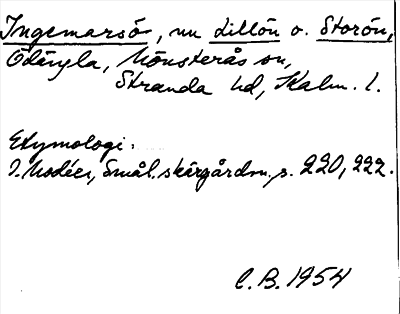 Ingemarsö, nu Lillön o. Storön,
Ödängla, Mönsterås sn,
Stranda hd, Kalm. l.
Etymologi:
I. Modéer, Smål. skärgårdsn. s. 220, 222.
C.B. 1954